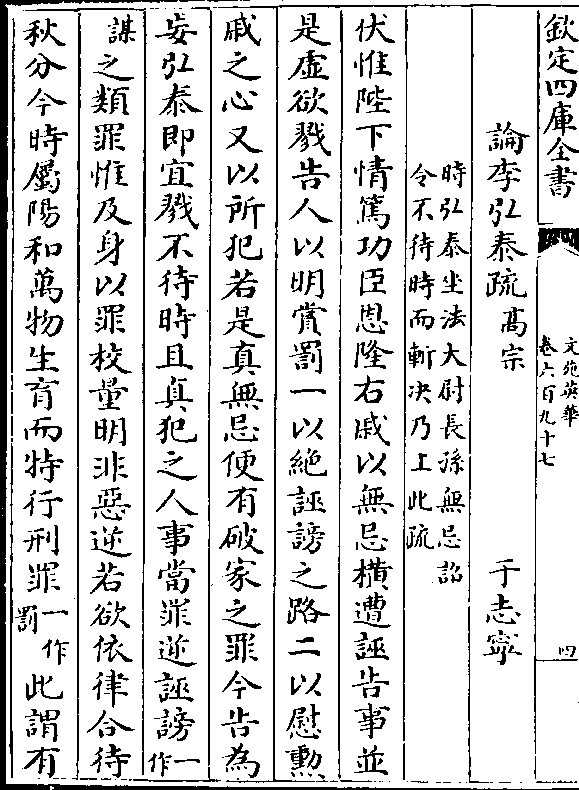 欽定四庫全書
文苑英華
卷六百九十七
四
論李弘泰疏高宗
于志寧
時弘泰坐法大尉長孫無忌詔
令不待時而斬決乃上此疏
伏惟陛下情篤功臣恩隆右戚以無忌橫遭誣告事並
是虛欲戮告人以明賞罰一以絶誣謗之路二以慰勲
戚之心又以所犯若是真無忌便有破家之罪今告為
妄弘泰即宜戮不待時且真犯之人事當罪逆誣謗一作
謀之類罪惟及身以罪校量明非惡逆若欲依律合待
秋分今時屬陽和萬物生育而特行刑罪一作罰此謂有